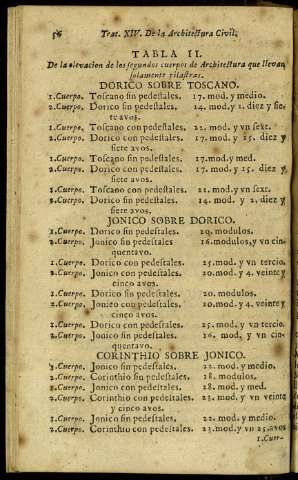 56 Trat. XIV. De la Architectura Civil.
TABLA II.
De la elevacion de los segundos cuerpos de Architectura que llevan
solamente pilastras.
DORICO SOBRE TOSCANO.
1.Cuerpo. Toscano sin pedestales. 17. mod. y medio.
2.Cuerpo. Dorico sin pedestales. 14. mod. y 2. diez y sie-
te avos.
1.Cuerpo. Toscano con pedestales. 22. mod. y vn sext.
2.Cuerpo. Dorico con pedestales. 17. mod. y 15. diez y
siete avos.
1.Cuerpo. Toscano sin pedestales. 17. mod. y med.
2.Cuerpo. Dorico con pedestales. 17. mod. y 15. diez y
siete avos.
1.Cuerpo. Toscano con pedestales. 22. mod. y vn sext.
2.Cuerpo. Dorico sin pedestales. 14. mod. y 2. diez y
siete avos.
JONICO SOBRE DORICO.
1.Cuerpo. Dorico sin pedestales. 20. modulos.
2.Cuerpo. Jonico sin pedestales 16. modulos, y vn cin-
quentavo.
1.Cuerpo. Dorico con pedestales. 25. mod. y vn tercio.
2.Cuerpo. Jonico con pedestales. 20. mod. y 4. veinte y
cinco avos.
1.Cuerpo. Dorico sin pedestales. 20. modulos.
2.Cuerpo. Jonico con pedestales. 20. mod. y 4. veinte y
cinco avos.
1.Cuerpo. Dorico con pedestales. 25. mod. y vn tercio.
2.Cuerpo. Jonico sin pedestales. 16. mod. y vn cin-
quentavo.
CORINTHIO SOBRE JONICO.
1.Cuerpo. Jonico sin pedestales. 22. mod. y medio.
2.Cuerpo. Corinthio sin pedestales. 18. modulos.
1.Cuerpo. Jonico con pedestales. 28. mod. y med.
2.Cuerpo. Corinthio con pedestales. 23. mod. y vn veinte
y cinco avos.
1.Cuerpo. Jonico sin pedestales. 22. mod. y medio.
2.Cuerpo. Corinthio con pedestales. 23. mod. y vn 25. avos
1.Cuer-